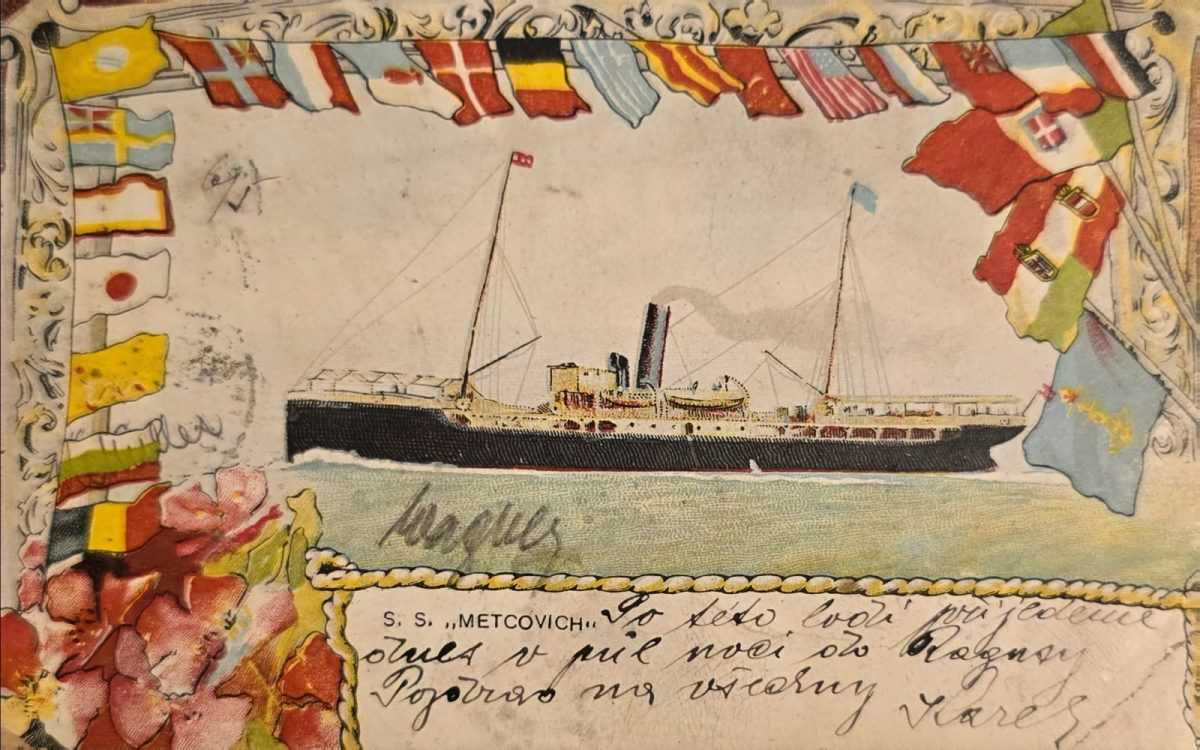 Wagner
S. S. „METCOVICH„ Po této lodi přijedeme
dnes v půl noci do Raguzy
Pozdrav na všechny
Karel